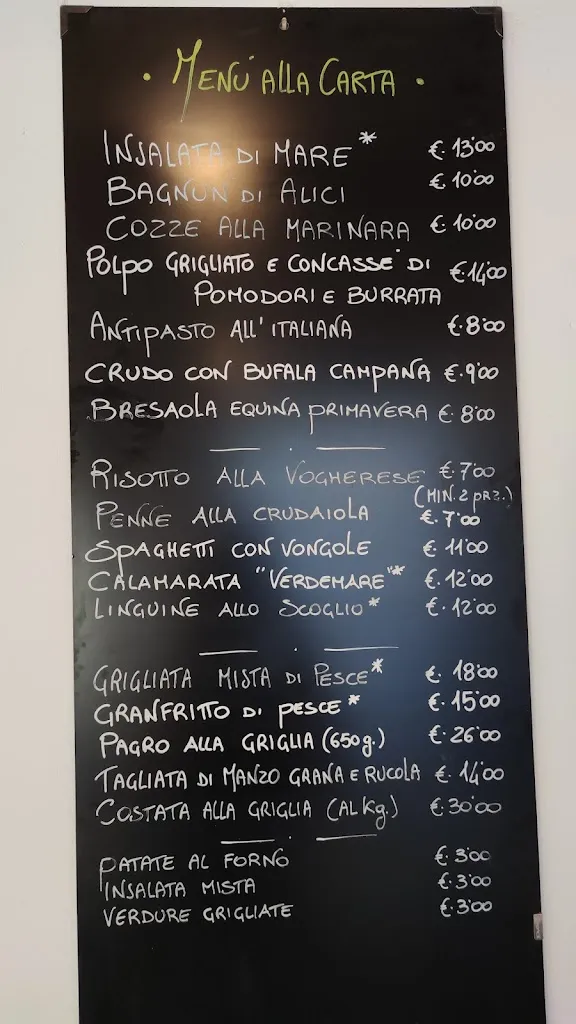 · MENÙ ALLA CARTA ·
INSALATA DI MARE* €.13'00
BAGNUN DI ALICI €.10'00
COZZE ALLA MARINARA €.10'00
POLPO GRIGLIATO E CONCASSÈ DI €.14'00
POMODORI E BURRATA
ANTIPASTO ALL'ITALIANA €.8'00
CRUDO CON BUFALA CAMPANA €.9'00
BRESAOLA EQUINA PRIMAVERA €.8'00
RISOTTO ALLA VOGHERESE €.7'00
(MIN.2 PRZ.)
PENNE ALLA CRUDAIOLA €.7'00
SPAGHETTI CON VONGOLE €.11'00
CALAMARATA "VERDEMARE"* €.12'00
LINGUINE ALLO SCOGLIO* €.12'00
GRIGLIATA MISTA DI PESCE* €.18'00
GRANFRITTO DI PESCE* €.15'00
PAGRO ALLA GRIGLIA (650g.) €.26'00
TAGLIATA DI MANZO GRANA E RUCOLA €.14'00
COSTATA ALLA GRIGLIA (AL Kg.) €.30'00
PATATE AL FORNO €.3'00
INSALATA MISTA €.3'00
VERDURE GRIGLIATE €.3'00